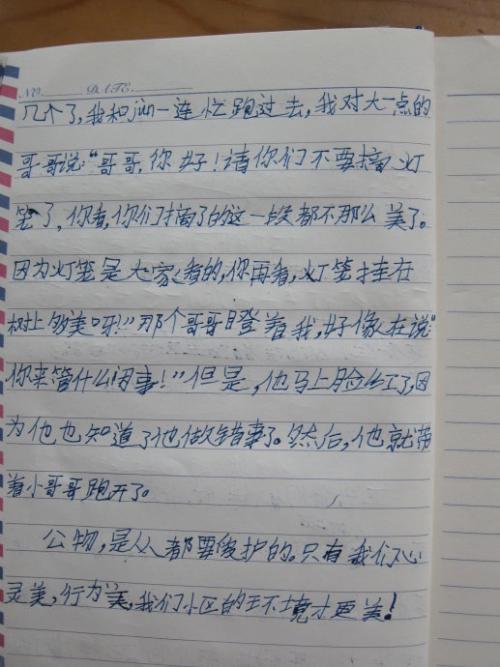 NO. DATE.
几个了,我和jùn一连忙跑过去,我对大一点的
哥哥说:“哥哥,你好!请你们不要摘灯
笼了,你看,你们摘了的这一段都不那么美了。
因为灯笼是大家看的,你再看,灯笼挂在
树上多美呀!”那个哥哥瞪着我,好像在说“
你来管什么闲事!”但是,他马上脸红了,因
为他也知道了他做错事了。然后,他就带
着小哥哥跑开了。
公物,是人人都要爱护的。只有我们心
灵美,行为美,我们小区的环境才更美!